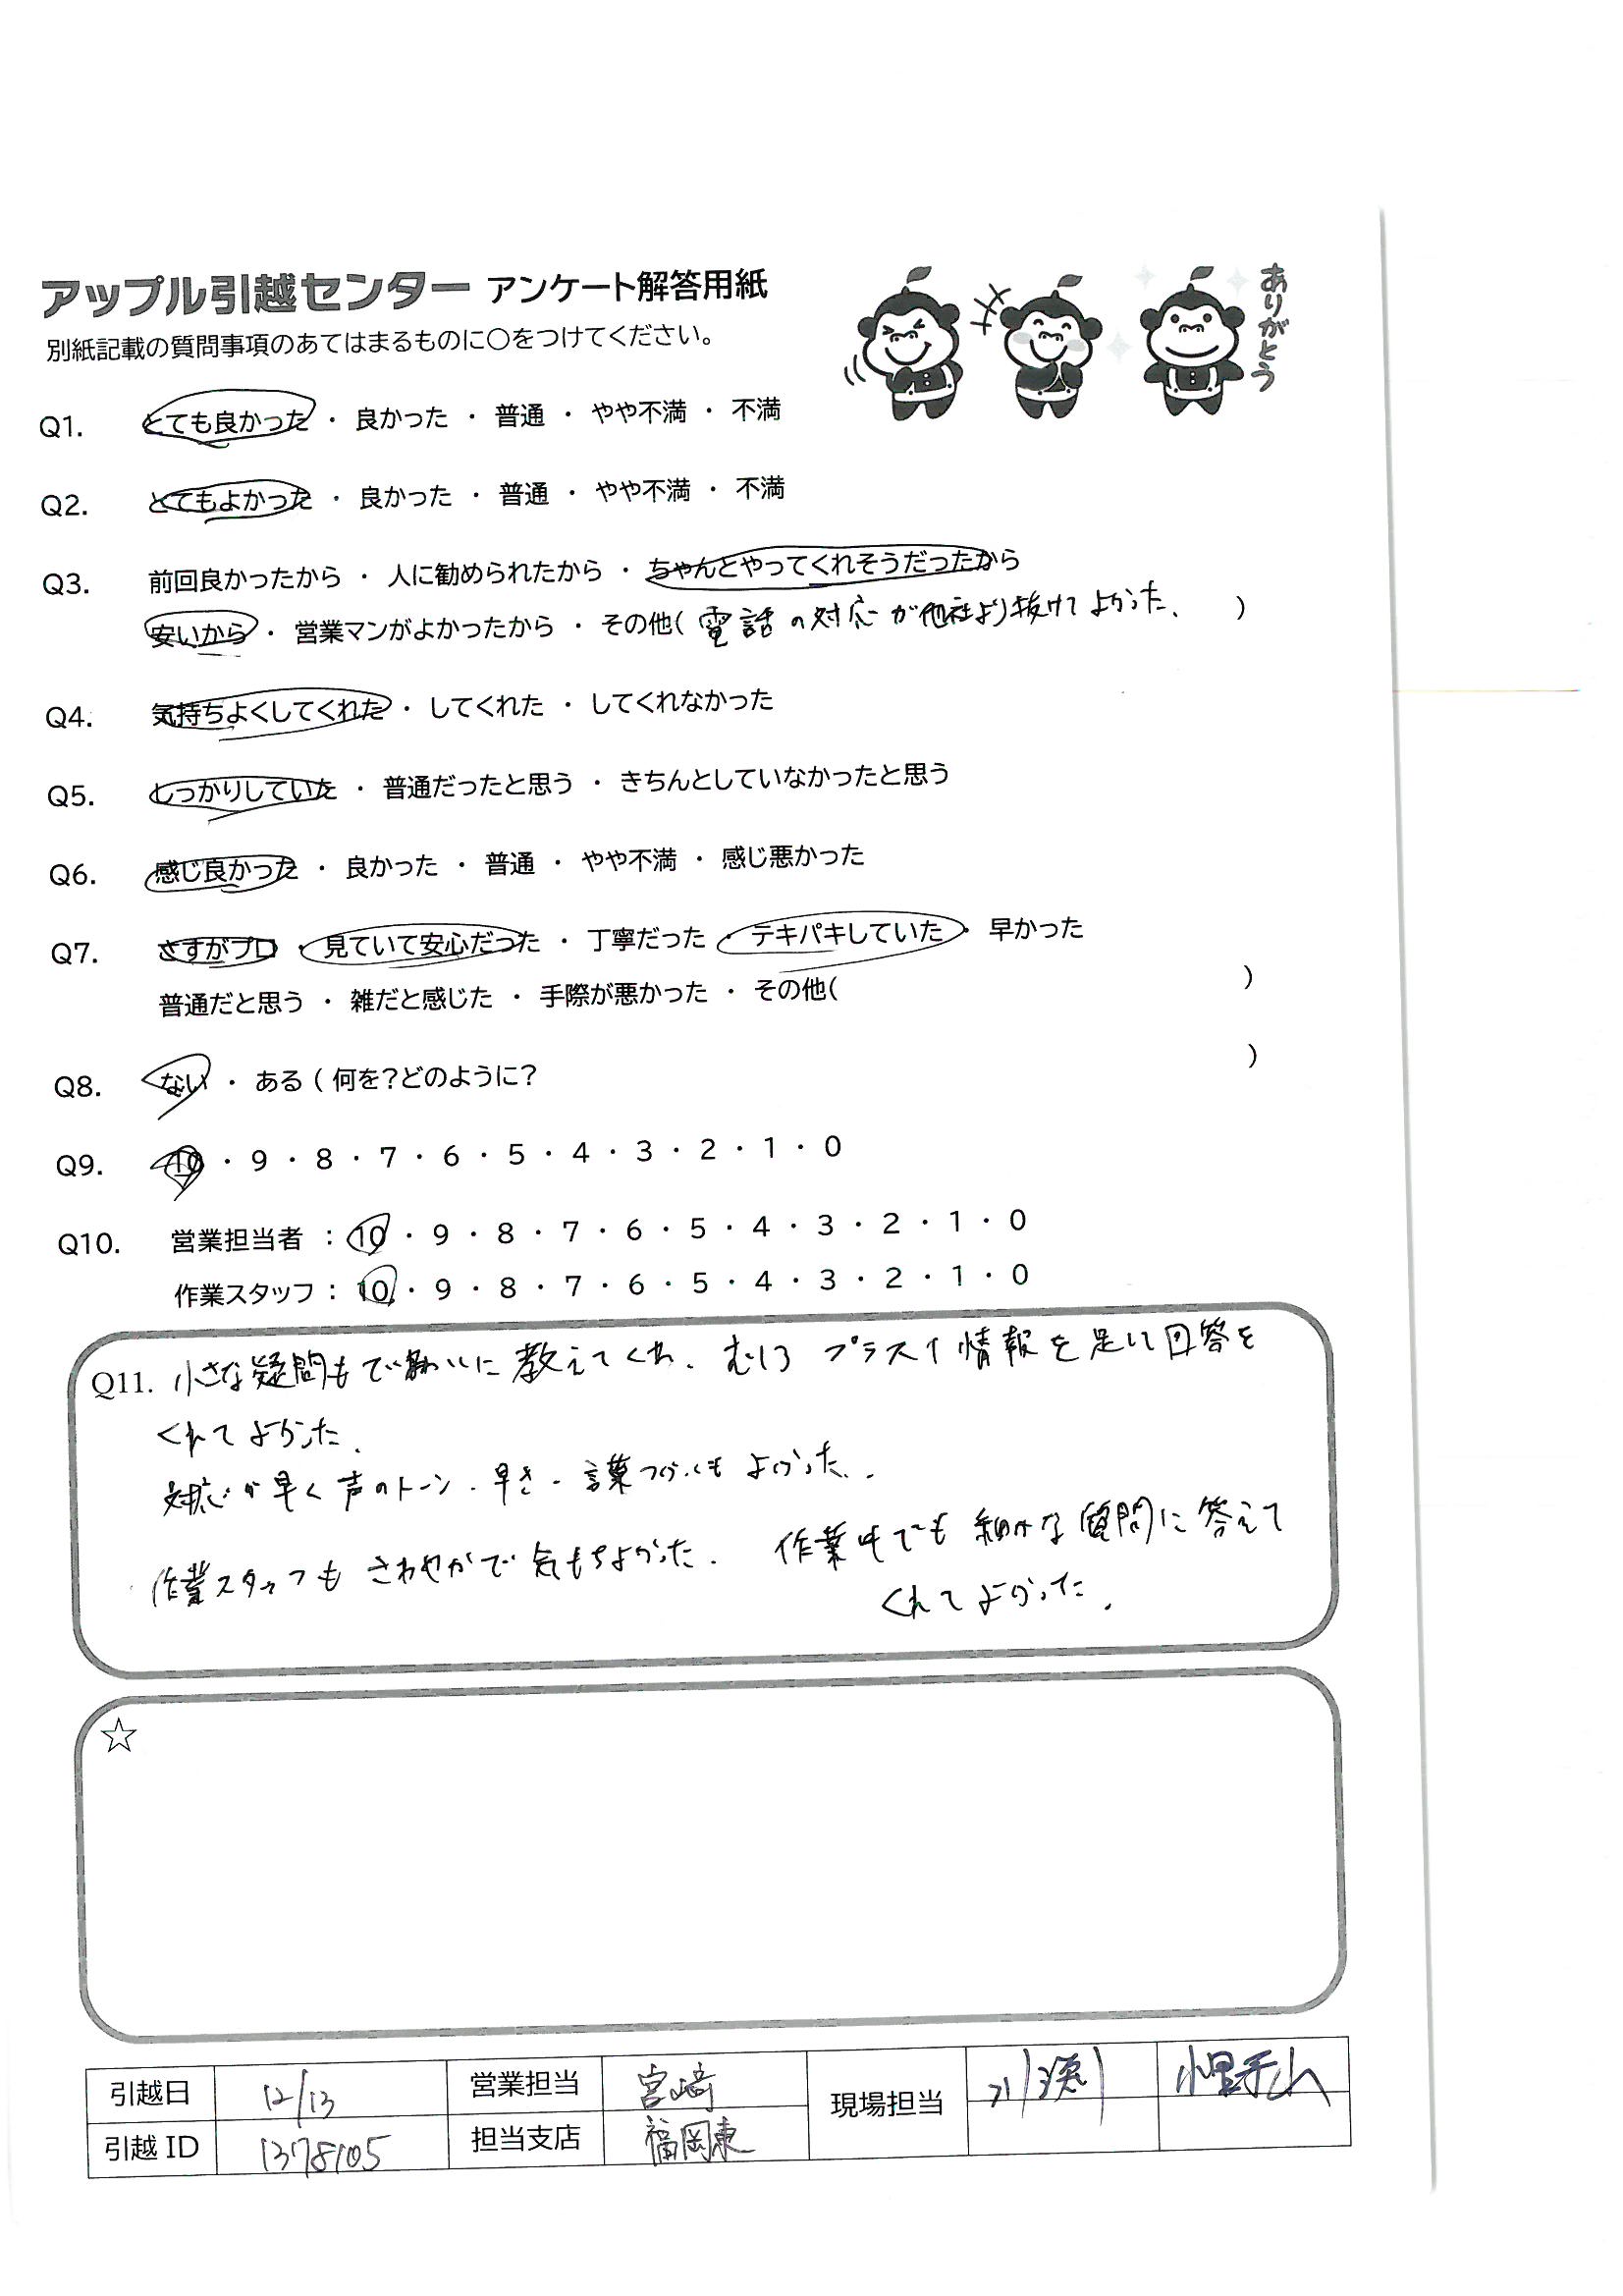 アップル引越センター アンケート解答用紙
ありがとう
別紙記載の質問事項のあてはまるものに〇をつけてください。
Q1. とても良かった ・ 良かった ・ 普通 ・ やや不満 ・ 不満
Q2. とてもよかった ・ 良かった ・ 普通 ・ やや不満 ・ 不満
Q3. 前回良かったから ・ 人に勧められたから ・ ちゃんとやってくれそうだったから
安いから ・ 営業マンがよかったから ・ その他( 電話の対応が他社より抜けてよかった。 )
Q4. 気持ちよくしてくれた ・ してくれた ・ してくれなかった
Q5. しっかりしていた ・ 普通だったと思う ・ きちんとしていなかったと思う
Q6. 感じ良かった ・ 良かった ・ 普通 ・ やや不満 ・ 感じ悪かった
Q7. さすがプロ ・ 見ていて安心だった ・ 丁寧だった ・ テキパキしていた ・ 早かった
普通だと思う ・ 雑だと感じた ・ 手際が悪かった ・ その他( )
Q8. ない ・ ある ( 何を?どのように? )
Q9. 10 ・ 9 ・ 8 ・ 7 ・ 6 ・ 5 ・ 4 ・ 3 ・ 2 ・ 1 ・ 0
Q10. 営業担当者 : 10 ・ 9 ・ 8 ・ 7 ・ 6 ・ 5 ・ 4 ・ 3 ・ 2 ・ 1 ・ 0
作業スタッフ : 10 ・ 9 ・ 8 ・ 7 ・ 6 ・ 5 ・ 4 ・ 3 ・ 2 ・ 1 ・ 0
Q11. 小さな疑問もていねいに教えてくれ、むしろ プラスイ情報を足して回答を
くれてよかった。
対応が早く声のトーン・早さ・言葉づかいもよかった。
作業スタッフもさわやかで気もちよかった。 作業中でも細かな質問に答えて
くれてよかった。
☆
引越日 12/13 営業担当 宮崎 現場担当 小野山
引越 ID 1378105 担当支店 福岡東